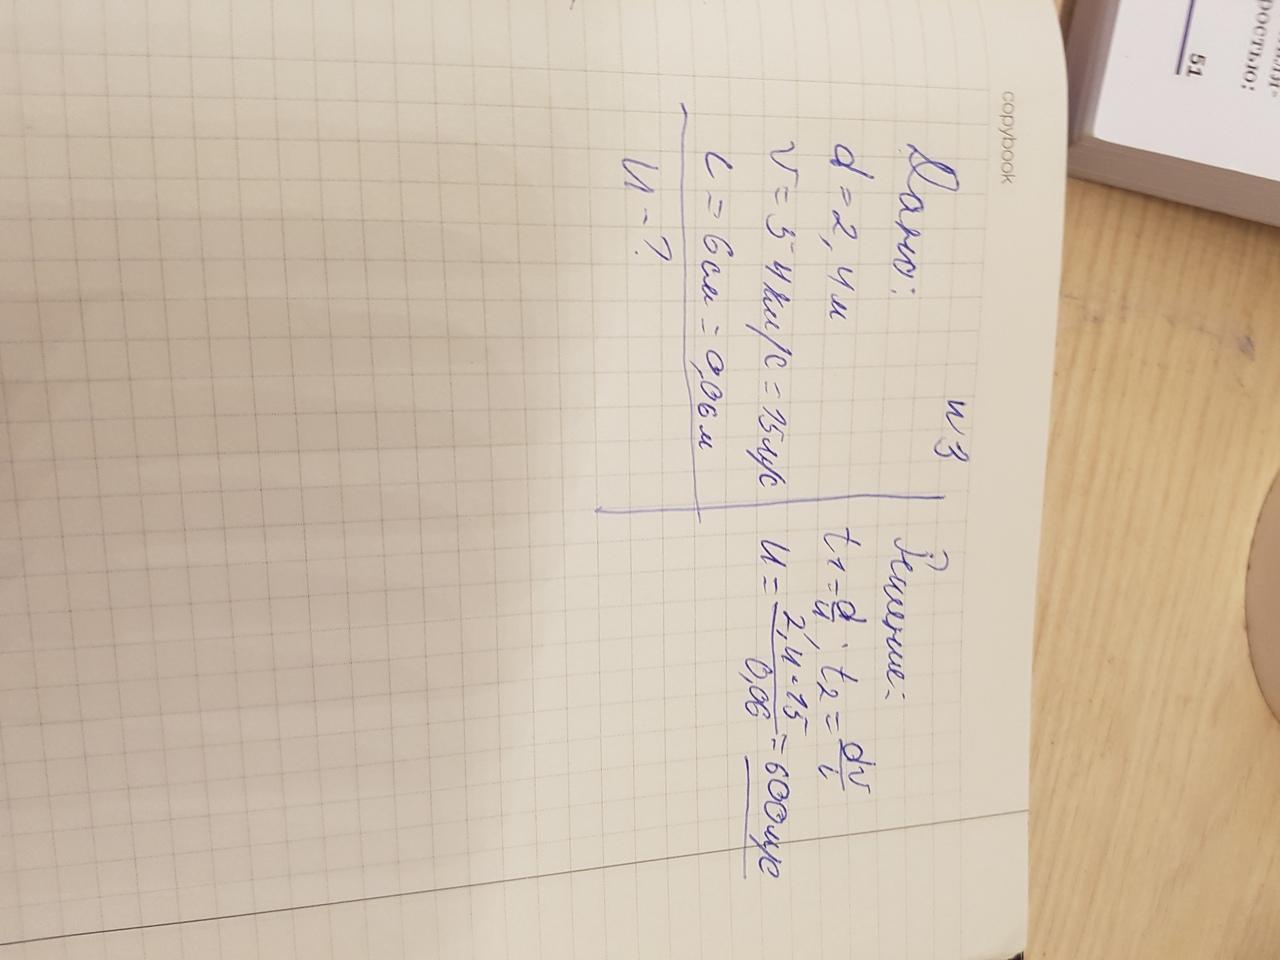 copybook
N 3
Дано:
d = 2,4 м
v = 54 км/с = 15 м/с
l = 6 см = 0,06 м
u - ?
Решение:
t₁ = d/u; t₂ = dv/l
u = 2,4 · 15/0,06 = 600 м/с
ростью:
51